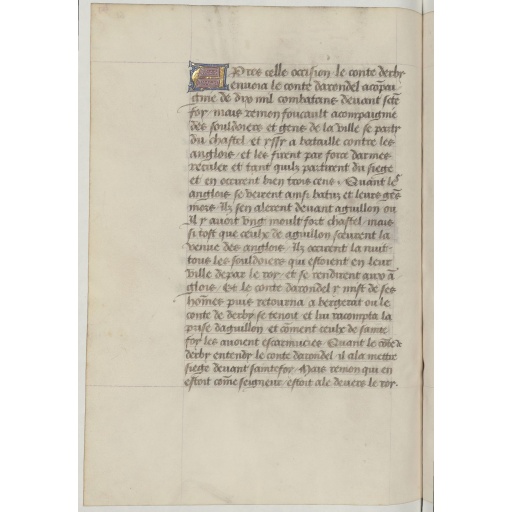 Apres celle occision le conte derby
envoia le conte darondel acompai
gnie de dux mil combatans devant scte
foy mais remon foucault acompaignie
des souldoiers et gens de la ville se party
du chastel et yssy a bataille contre les
anglois et les firent par force darmes
reculer et tant quilz partirent du siege
et en occirent bien trois cens. Quant les
anglois se veirent ainsi batuz et leurs gens
mors ilz sen alerent devant aguillon ou
il y avoit ung moult fort chastel mais
si tost que ceulx de aguillon sceurent la
venue des anglois ilz occirent la nuit
tous les souldoiers qui estoient en leur
ville depar le roy et se rendirent aux ā
glois. Et le conte darondel y mist de ses
hōmes puis retourna a bergerat ou le
conte de derby se tenoit et lui racompta la
prise daguillon et cōment ceulx de sainte
foy les avoient escarmuciés. Quant le cōte de
derby entendy le conte darondel il ala mettre
siege devant saintefoy. Mais remon qui en
estoit cōme seigneur estoit ale devers le roy.